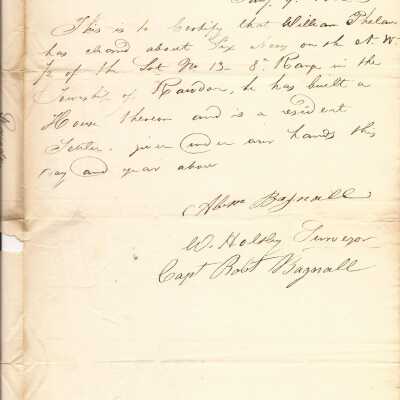 This is to Certify that William Phelan
has cleard about Six Acres on the N. W.
1/2 of the Lot No 13 - 8th Range in the
Township of Rawdon, he has built a
House thereon and is a resident
Settler. given under our hands this
day and year above
Bagnall
W. Holtby Surveyor
Capt Robt Bagnall